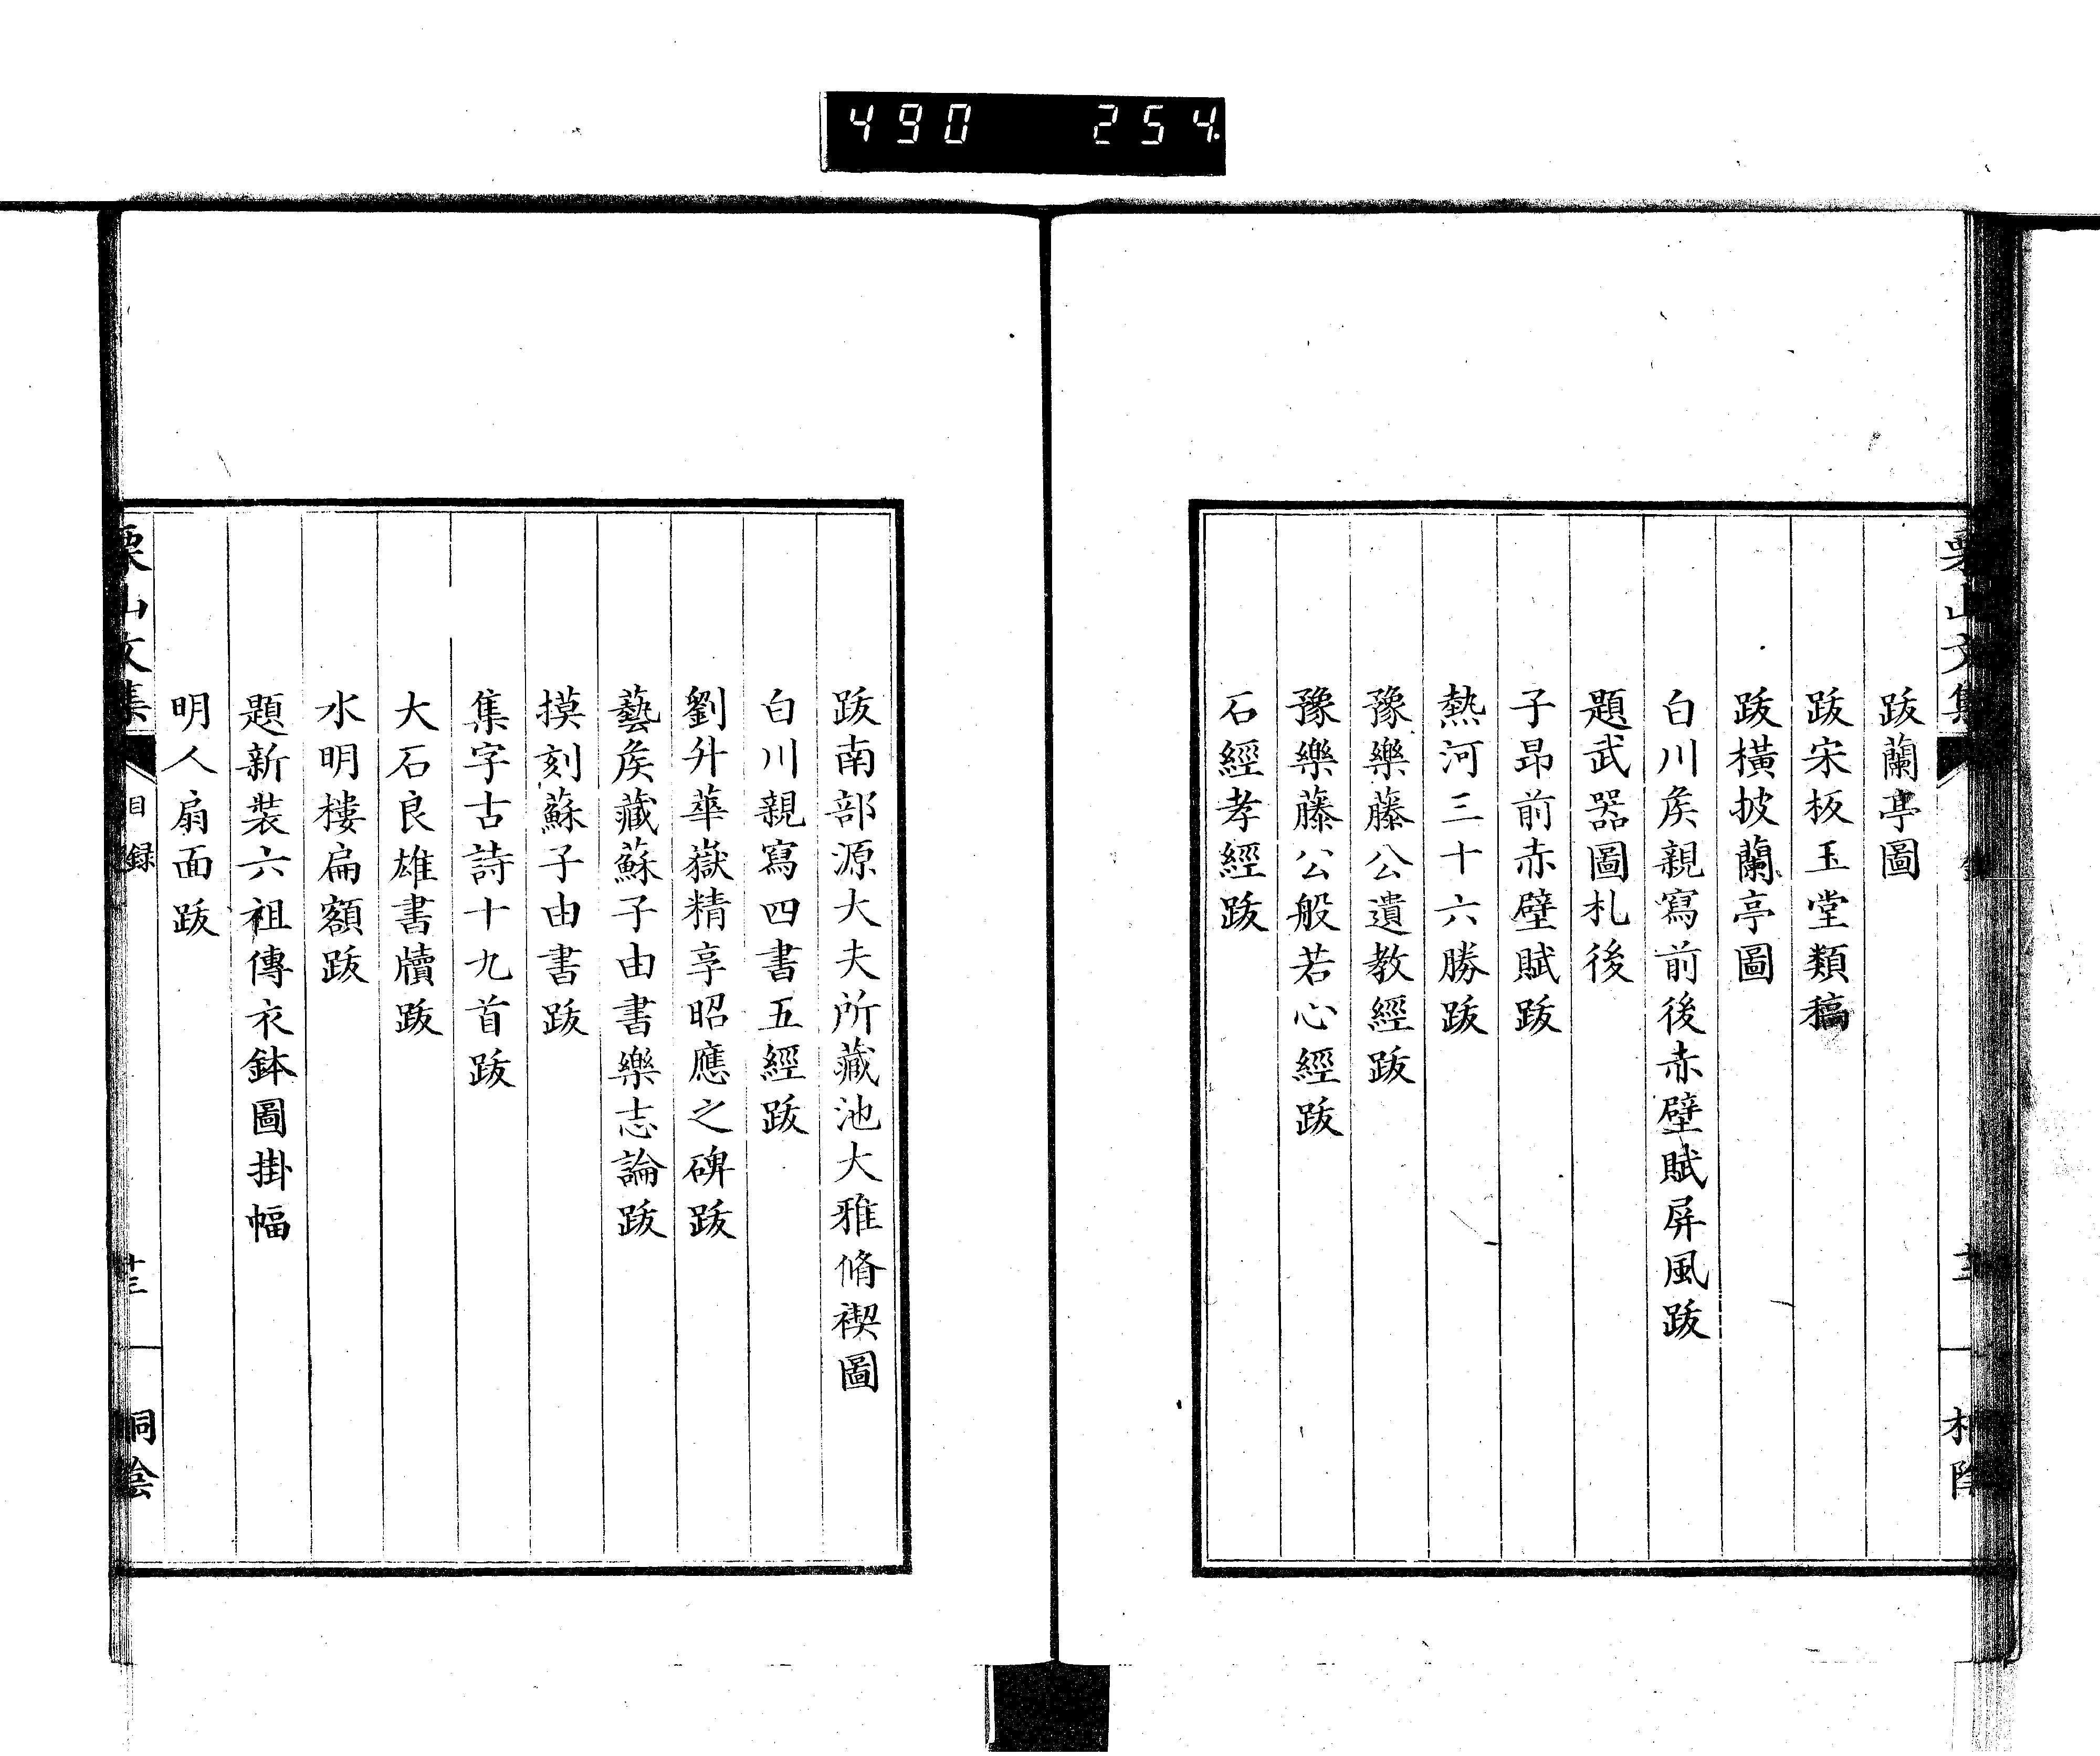 490 254
跋蘭亭圖
跋宋板玉堂類稿
跋橫披蘭亭圖
白川矦親寫前後赤壁賦屏風跋
題武器圖札後
子昂前赤壁賦跋
熱河三十六勝跋
豫樂藤公遺教經跋
豫樂藤公般若心經跋
石經孝經跋
跋南部源大夫所藏池大雅脩禊圖
白川親寫四書五經跋
劉升華嶽精享昭應之碑跋
藝矦藏蘇子由書樂志論跋
摸刻蘇子由書跋
集字古詩十九首跋
大石良雄書牘跋
水明樓扁額跋
題新裝六祖傳衣鉢圖掛幅
明人扇面跋
栗山文集 目錄
桐陰